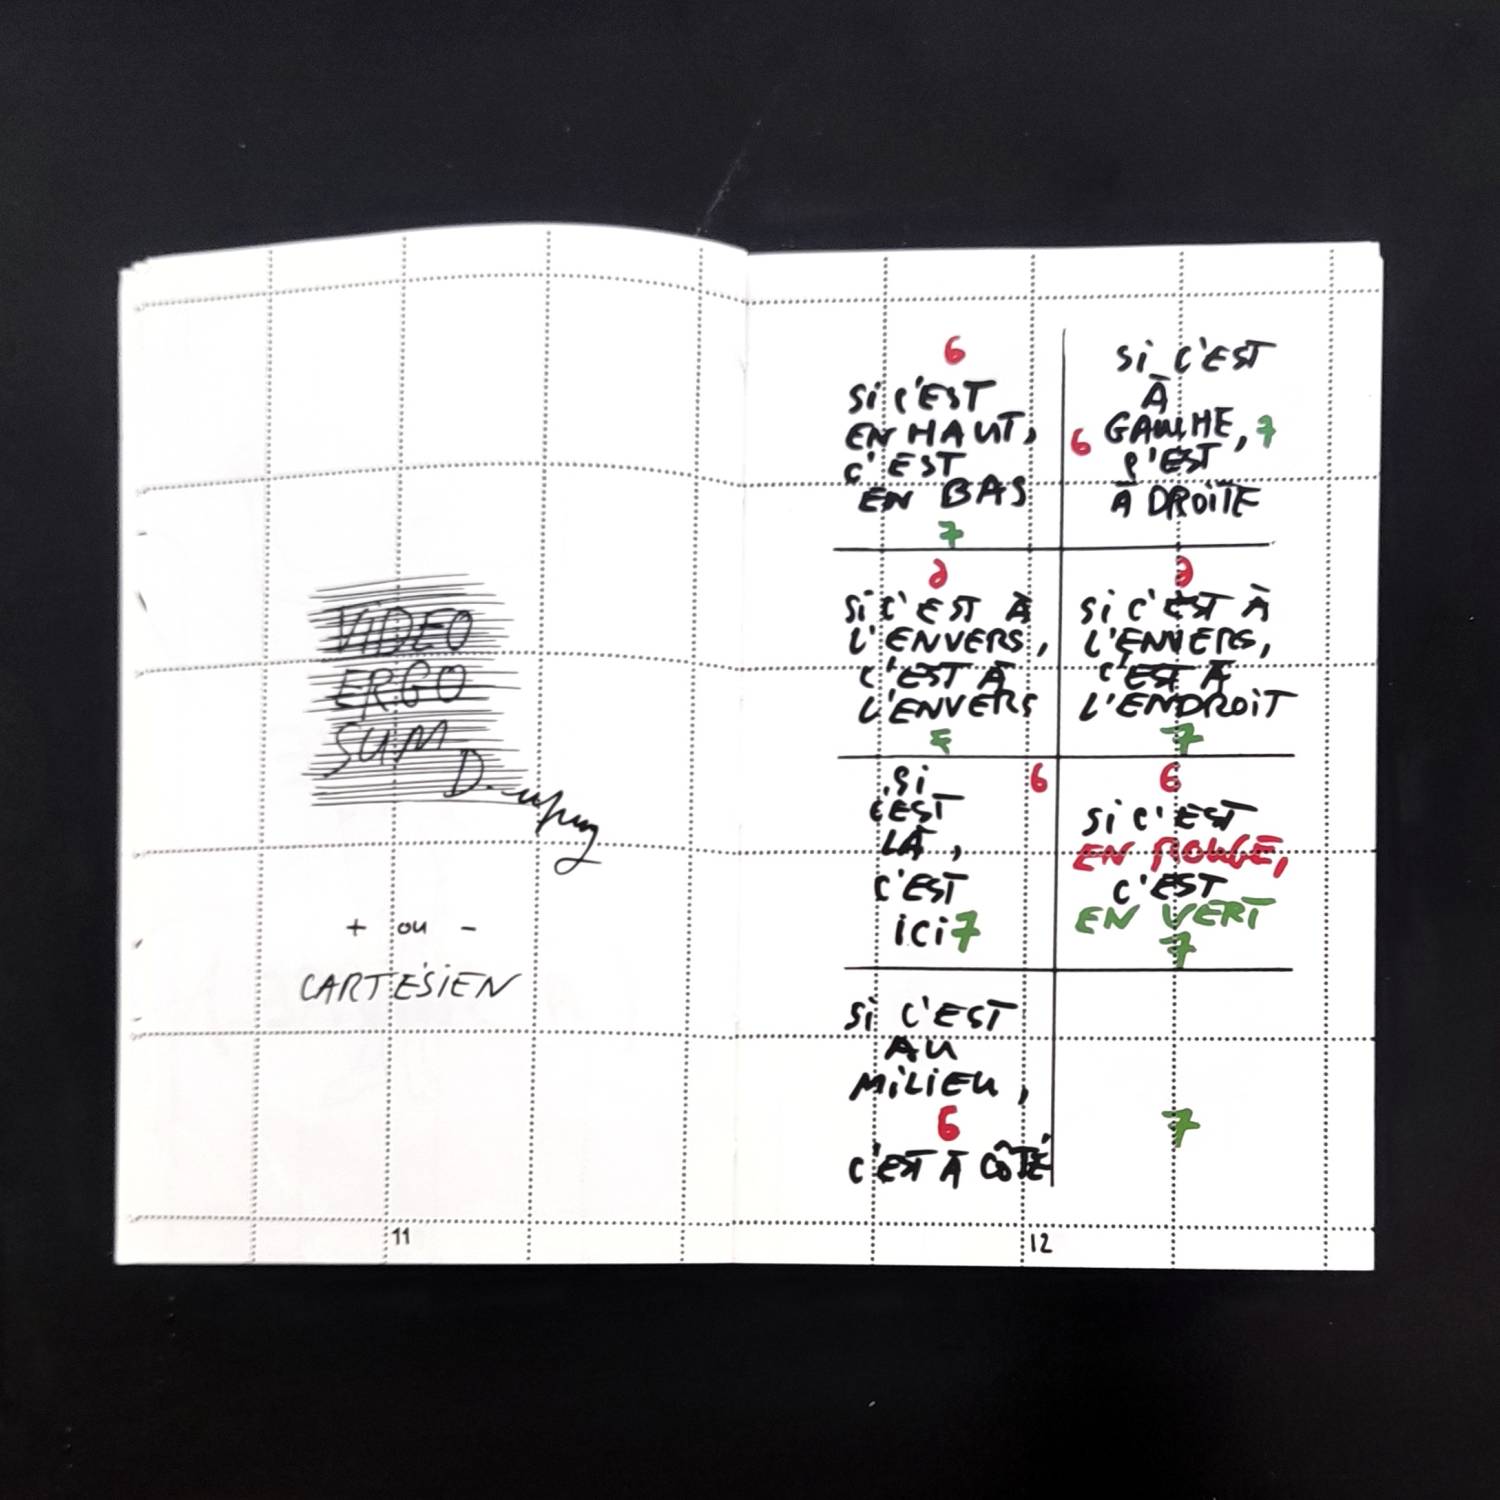 VIDEO
ERGO
SUM
+ ou -
CARTÉSIEN
11
6
Si C'EST
EN HAUT,
C'EST
EN BAS
7
Si C'EST
À
6 GAUCHE, 7
C'EST
À DROiTE
6
Si C'EST À
L'ENVERS,
C'EST À
L'ENVERS
7
6
Si C'EST À
L'ENVERS,
C'EST À
L'ENDROiT
7
Si 6
C'EST
LÀ,
C'EST
iCi 7
6
Si C'EST
EN ROUGE,
C'EST
EN VERT
7
Si C'EST
AU
MiLiEU,
6
C'EST À CÔTÉ
7
12